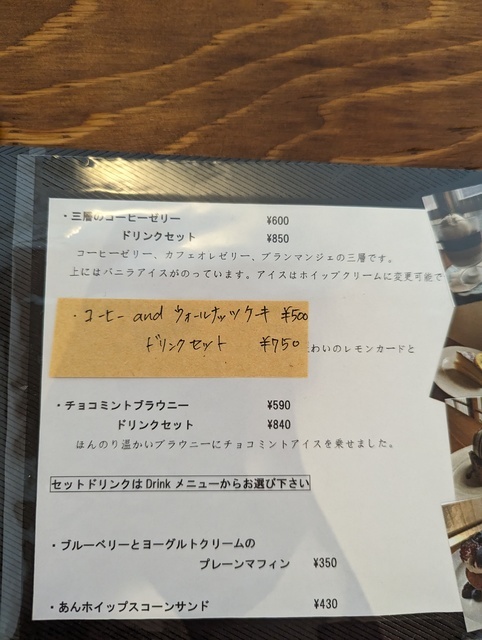 ・三層のコーヒーゼリー ¥600
ドリンクセット ¥850
コーヒーゼリー、カフェオレゼリー、ブランマンジェの三層です。
上にはバニラアイスがのっています。アイスはホイップクリームに変更可能で
・コーヒー and ウォールナッツケーキ ¥500
ドリンクセット ¥750
わいのレモンカードと
・チョコミントブラウニー ¥590
ドリンクセット ¥840
ほんのり温かいブラウニーにチョコミントアイスを乗せました。
セットドリンクは Drink メニューからお選び下さい
・ブルーベリーとヨーグルトクリームの
プレーンマフィン ¥350
・あんホイップスコーンサンド ¥430